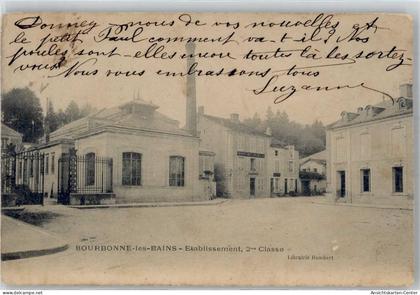 Donnez-nous de vos nouvelles et
le petit Paul comment va-t-il? Nos
poules sont-elles encore toutes là les sortez-
vous? Nous vous embrassons tous
Suzanne
BOURBONNE-les-BAINS - Etablissement, 2me Classe
Librairie Humbert
www.delcampe.net
International-Center